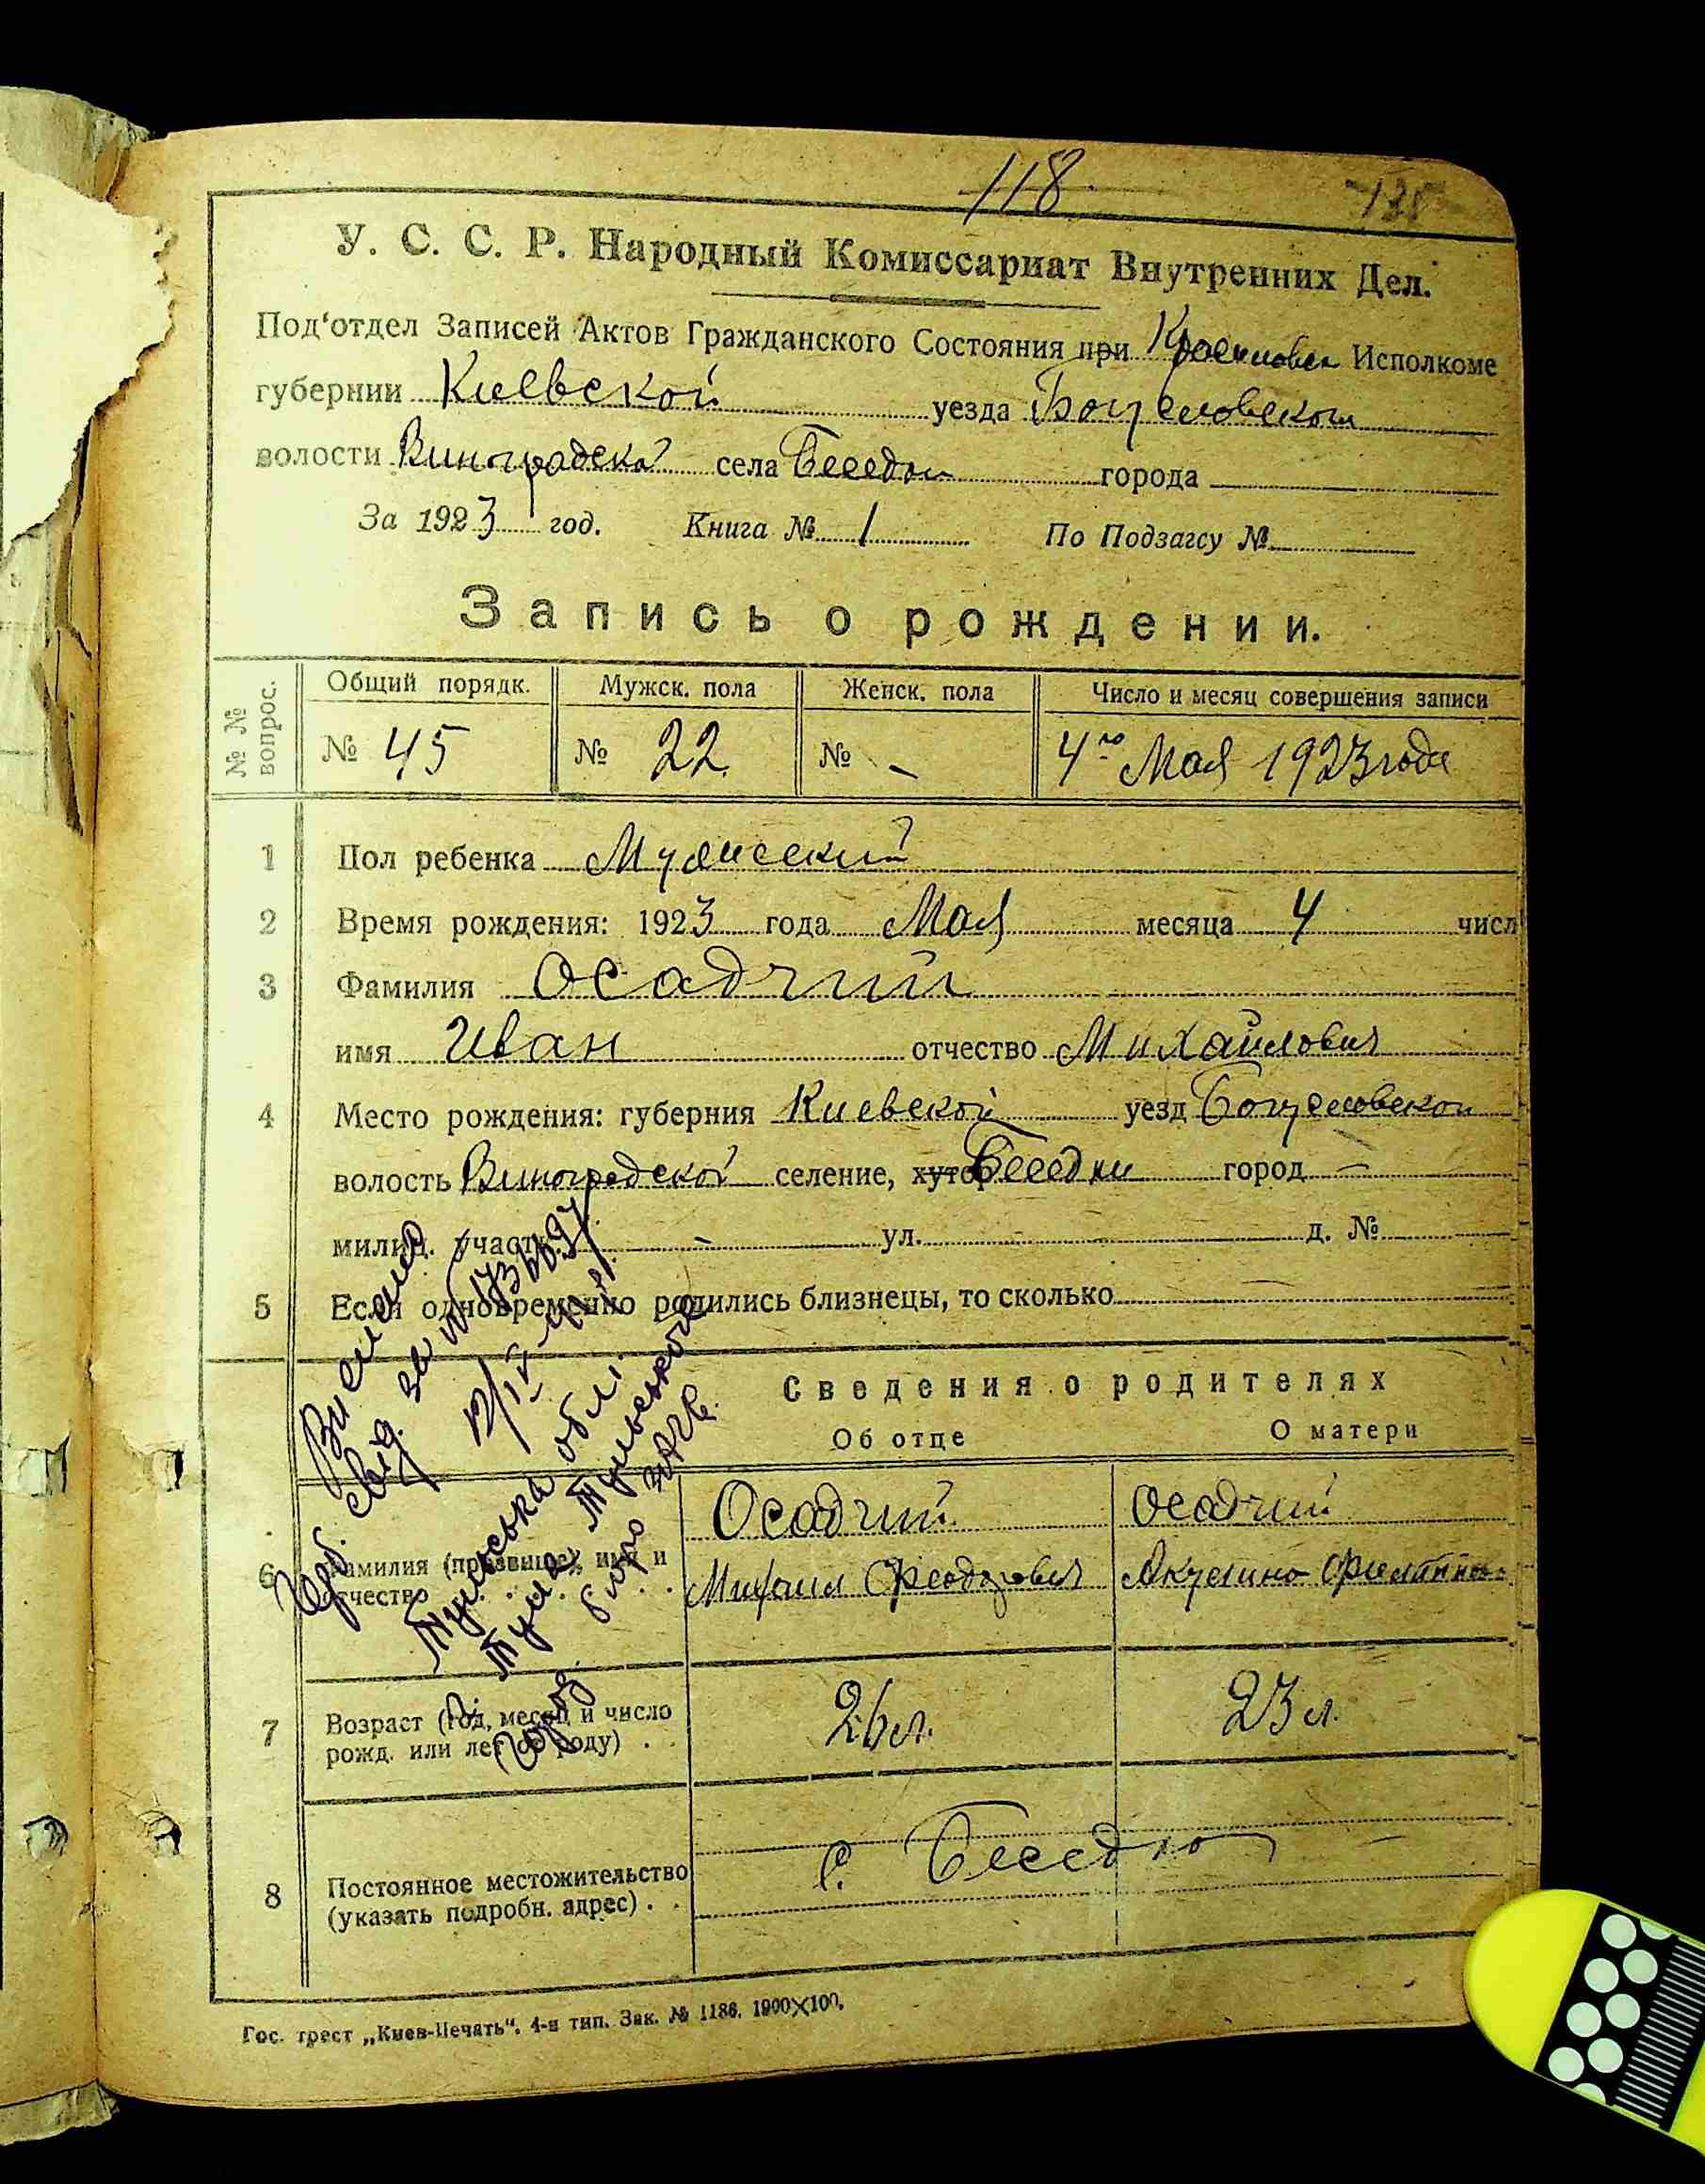 118
У. С. С. Р. Народный Комиссариат Внутренних Дел.
Под'отдел Записей Актов Гражданского Состояния при Исполкоме
губернии Киевской уезда Богуславском
волости Виноградской села Беседки города
За 1923 год. Книга № 1 По Подзагсу №
Запись о рождении.
№ № вопрос.
Общий порядк. Мужск. пола Женск. пола Число и месяц совершения записи
№ 45 № 22 № - 4го Мая 1923 года
1 Пол ребенка Мужеский
2 Время рождения: 1923 года Мая месяца 4 числ
3 Фамилия Осадчий
имя Иван отчество Михайлович
4 Место рождения: губерния Киевской уезд
волость Виноградской селение, хутор Беседки город —
милиц. участ. - ул. д. №
5 Если одновременно родились близнецы, то сколько
Сведения о родителях
Об отце О матери
свід. за №
Тульська обл.
Тула Тульського
бюро
6 Фамилия (прозвище), имя и
отчество
Осадчий Осадчий
Михаил Феодорович
7 Возраст (год, месяц и число
рожд. или лет от роду)
26 л. 23 л.
8 Постоянное местожительство
(указать подробн. адрес)
с. Беседка
Гос. трест „Киев-Печать". 4-я тип. Зак. № 1186. 1900×100.